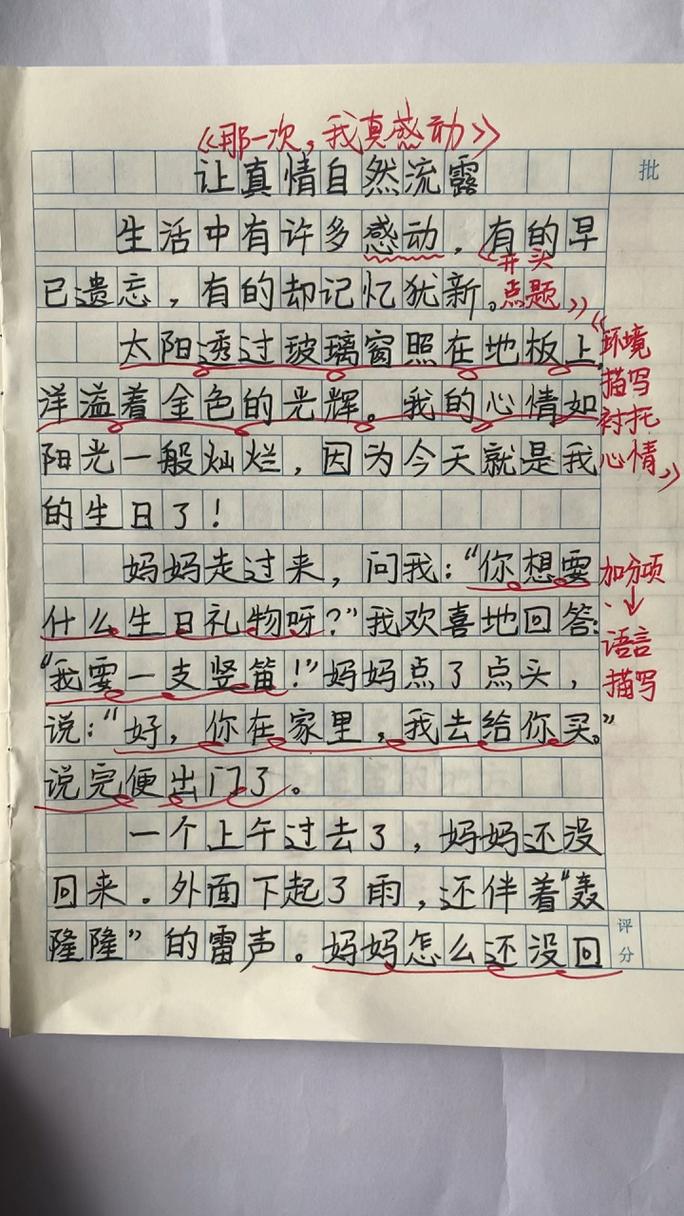 《那一次，我真感动》
让真情自然流露
批
生活中有许多感动，有的早
已遗忘，有的却记忆犹新。
《开头
点题》
太阳透过玻璃窗照在地板上，
洋溢着金色的光辉。我的心情如
阳光一般灿烂，因为今天就是我
的生日了！
《环境
描写
衬托
心情》
妈妈走过来，问我：“你想要
什么生日礼物呀？”我欢喜地回答：
“我要一支竖笛！”妈妈点了点头，
说：“好，你在家里，我去给你买。”
说完便出门了。
加分项
↓
语言
描写
一个上午过去了，妈妈还没
回来。外面下起了雨，还伴着“轰
隆隆”的雷声。妈妈怎么还没回
评
分